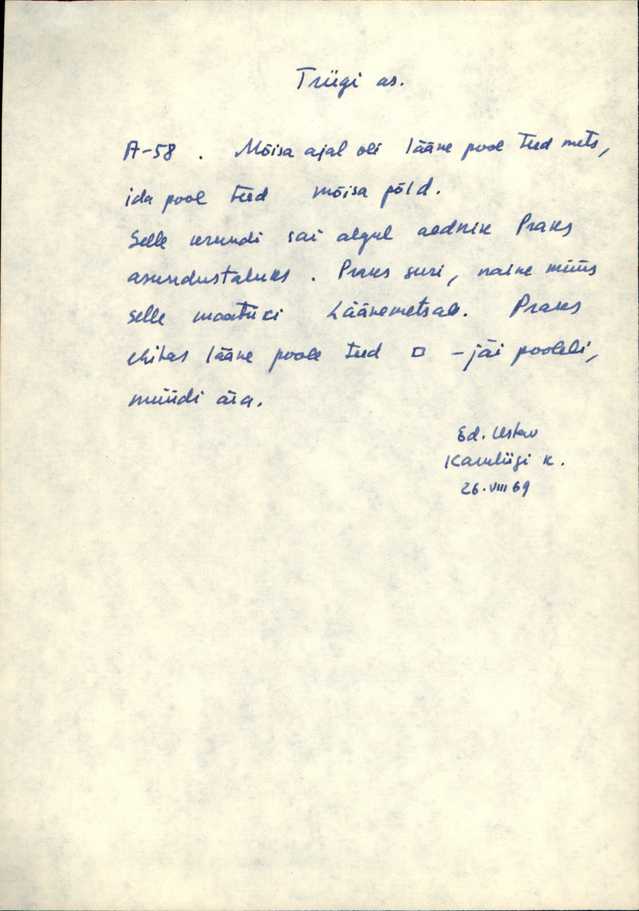 Triigi as.
A-58. Mõisa ajal oli lääne pool teed mets,
ida pool teed mõisa põld.
Selle krundi sai algul aednik Praks
asundustaluks. Praks suri, naine müüs
selle maatüki Läänemetsale. Praks
ehitas lääne poole teed □ - jäi pooleli,
müüdi ära.
Ed. Ustav
küla k.
26.VIII 69